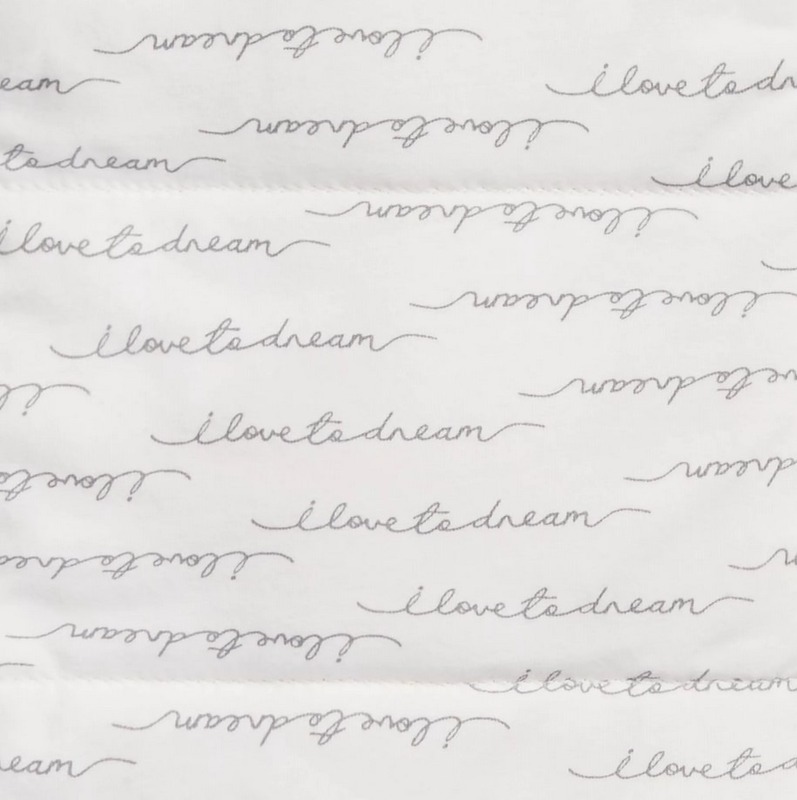 i love to dream
eam
i love to dr
i love to dream
to dream
i love
i love to dream
i love to dream
i love to dream
i love to dream
ve to dream
i l
i love to dream
i love to
dream
i love to dream
i love to drea
i love to dream
i love to dream
i love to dream
i love to dream
eam
i love to d